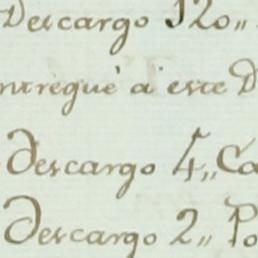 Descargo 120,,
ntregué a este D
Descargo 4,, Ca
Descargo 2,, Po